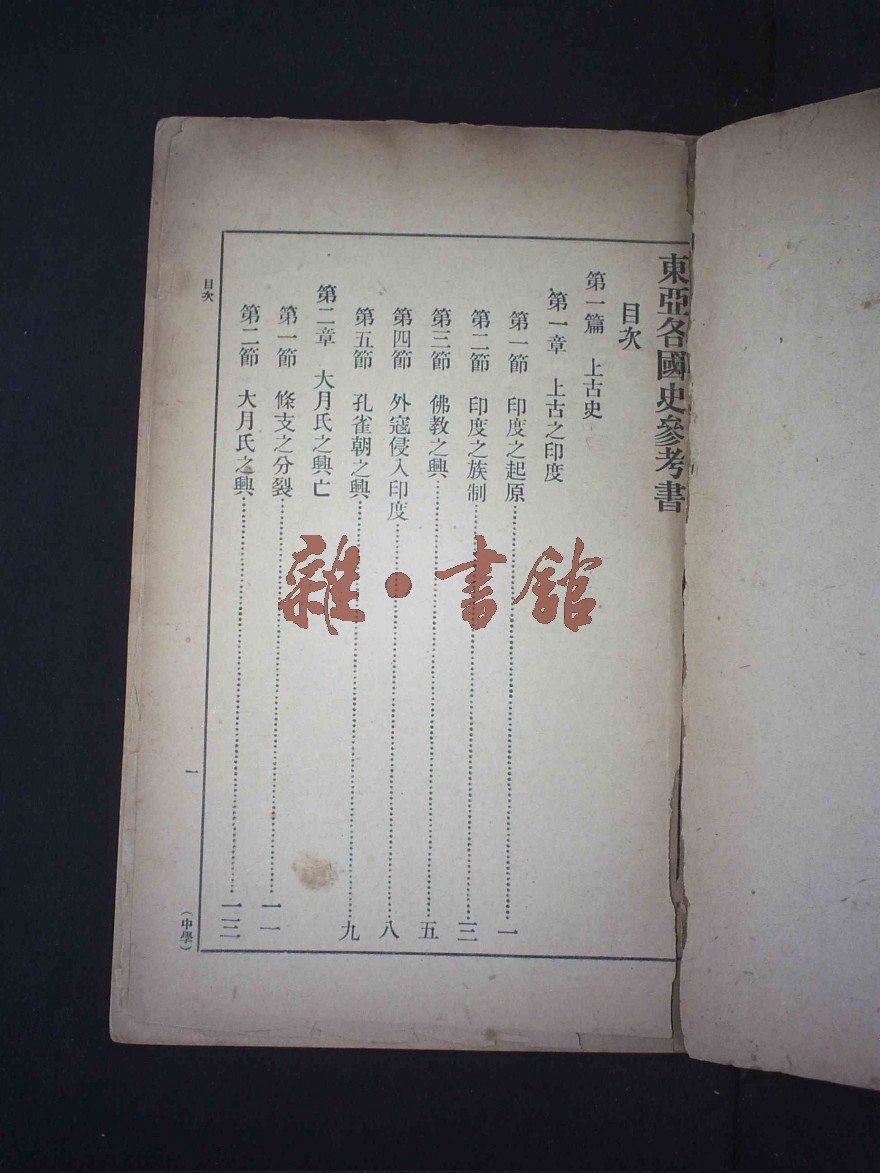 東亞各國史參考書
目次
第一篇 上古史
第一章 上古之印度
第一節 印度之起原 一
第二節 印度之族制 三
第三節 佛教之興 五
第四節 外寇侵入印度 八
第五節 孔雀朝之興 九
第二章 大月氏之興亡
第一節 條支之分裂 一一
第二節 大月氏之興 一三
目次
一
(中學)
雜·書館